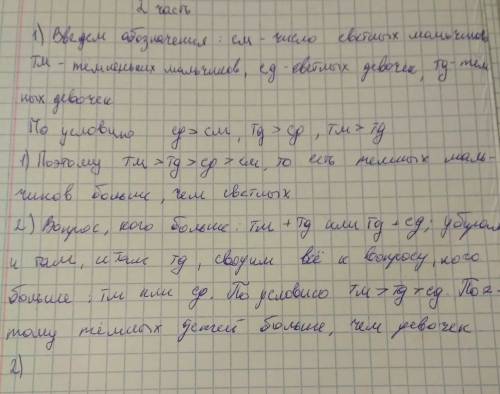 2 часть
1) Введем обозначения: см - число светлых мальчиков
тм - темненьких мальчиков, сд - светлых девочек, тд - тем
ных девочек
По условию сд > см, тд > сд, тм > тд
1) Поэтому тм > тд > сд > см, то есть темных маль-
чиков больше, чем светлых
2) Вопрос, кого больше: тм + тд или тд + сд; убирам
и там, и там тд, сводим всё к вопросу, кого
больше: тм или сд. По условию тм > тд > сд. Поэ-
тому тёмных детей больше, чем девочек
2)